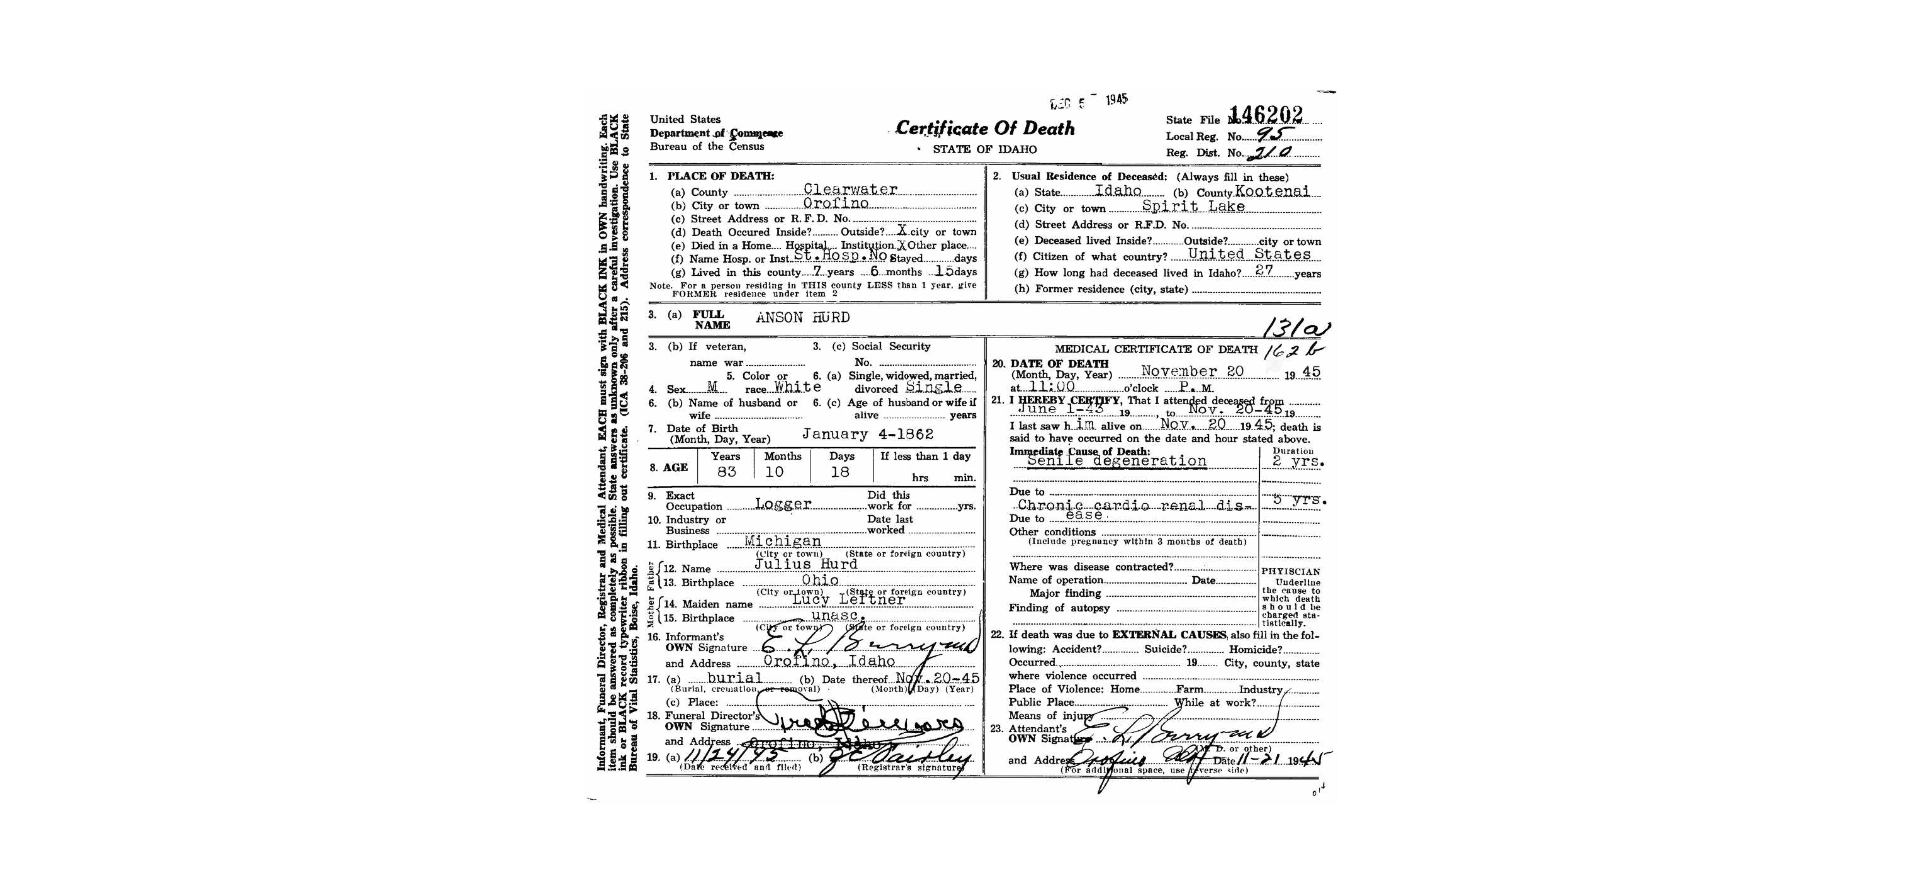 DEC 5 - 1945
United States
Department of Commerce
Bureau of the Census
Certificate Of Death
STATE OF IDAHO
State File No. 146202
Local Reg. No. 95
Reg. Dist. No. 210
Informant, Funeral Director, Registrar and Medical Attendant, EACH must sign with BLACK INK in OWN handwriting. Each
item should be answered as completely as possible. State answers as unknown only after a careful investigation. Use BLACK
ink or BLACK record typewriter ribbon in filling out certificate. (ICA 38-206 and 215). Address correspondence to State
Bureau of Vital Statistics, Boise, Idaho.
1. PLACE OF DEATH:
(a) County Clearwater
(b) City or town Orofino
(c) Street Address or R. F. D. No.
(d) Death Occured Inside? Outside? X city or town
(e) Died in a Home Hospital Institution X Other place
(f) Name Hosp. or Inst. St.Hosp.No Stayed days
(g) Lived in this county 7 years 6 months 15 days
Note. For a person residing in THIS county LESS than 1 year, give
FORMER residence under item 2
2. Usual Residence of Deceased: (Always fill in these)
(a) State Idaho (b) County Kootenai
(c) City or town Spirit Lake
(d) Street Address or R.F.D. No.
(e) Deceased lived Inside? Outside? city or town
(f) Citizen of what country? United States
(g) How long had deceased lived in Idaho? 27 years
(h) Former residence (city, state)
3. (a) FULL NAME ANSON HURD
131a
162b
3. (b) If veteran, 3. (c) Social Security
name war No.
5. Color or 6. (a) Single, widowed, married,
4. Sex M race White divorced Single
6. (b) Name of husband or 6. (c) Age of husband or wife if
wife alive years
7. Date of Birth
(Month, Day, Year) January 4-1862
8. AGE Years Months Days If less than 1 day
83 10 18 hrs min.
9. Exact Did this
Occupation Logger work for yrs.
10. Industry or Date last
Business worked
11. Birthplace Michigan
(City or town) (State or foreign country)
Father
12. Name Julius Hurd
13. Birthplace Ohio
(City or town) (State or foreign country)
Mother
14. Maiden name Lucy Leftner
15. Birthplace unasc.
(City or town) (State or foreign country)
16. Informant's
OWN Signature E L Berry md
and Address Orofino, Idaho
17. (a) burial (b) Date thereof Nov. 20-45
(Burial, cremation, or removal) (Month) (Day) (Year)
(c) Place:
18. Funeral Director's
OWN Signature
and Address Orofino, Idaho
19. (a) 11/24/45 (b)
(Date received and filed) (Registrar's signature)
MEDICAL CERTIFICATE OF DEATH
20. DATE OF DEATH
(Month, Day, Year) November 20 19 45
at 11:00 o'clock P. M.
21. I HEREBY CERTIFY, That I attended deceased from
June 1-43 19 , to Nov. 20-45 19
I last saw h im alive on Nov. 20 19 45; death is
said to have occurred on the date and hour stated above.
Immediate Cause of Death: Duration
Senile degeneration 2 yrs.
Due to 5 yrs.
Chronic cardio renal dis-
Due to ease.
Other conditions
(Include pregnancy within 3 months of death)
Where was disease contracted?
Name of operation Date
Major finding
Finding of autopsy
PHYISCIAN
Underline
the cause to
which death
should be
charged sta-
tistically.
22. If death was due to EXTERNAL CAUSES, also fill in the fol-
lowing: Accident? Suicide? Homicide?
Occurred 19 City, county, state
where violence occurred
Place of Violence: Home Farm Industry
Public Place While at work?
Means of injury
23. Attendant's
OWN Signature E L Berry md
(M. D. or other)
and Address Orofino Date 11-21 1945
(For additional space, use reverse side)